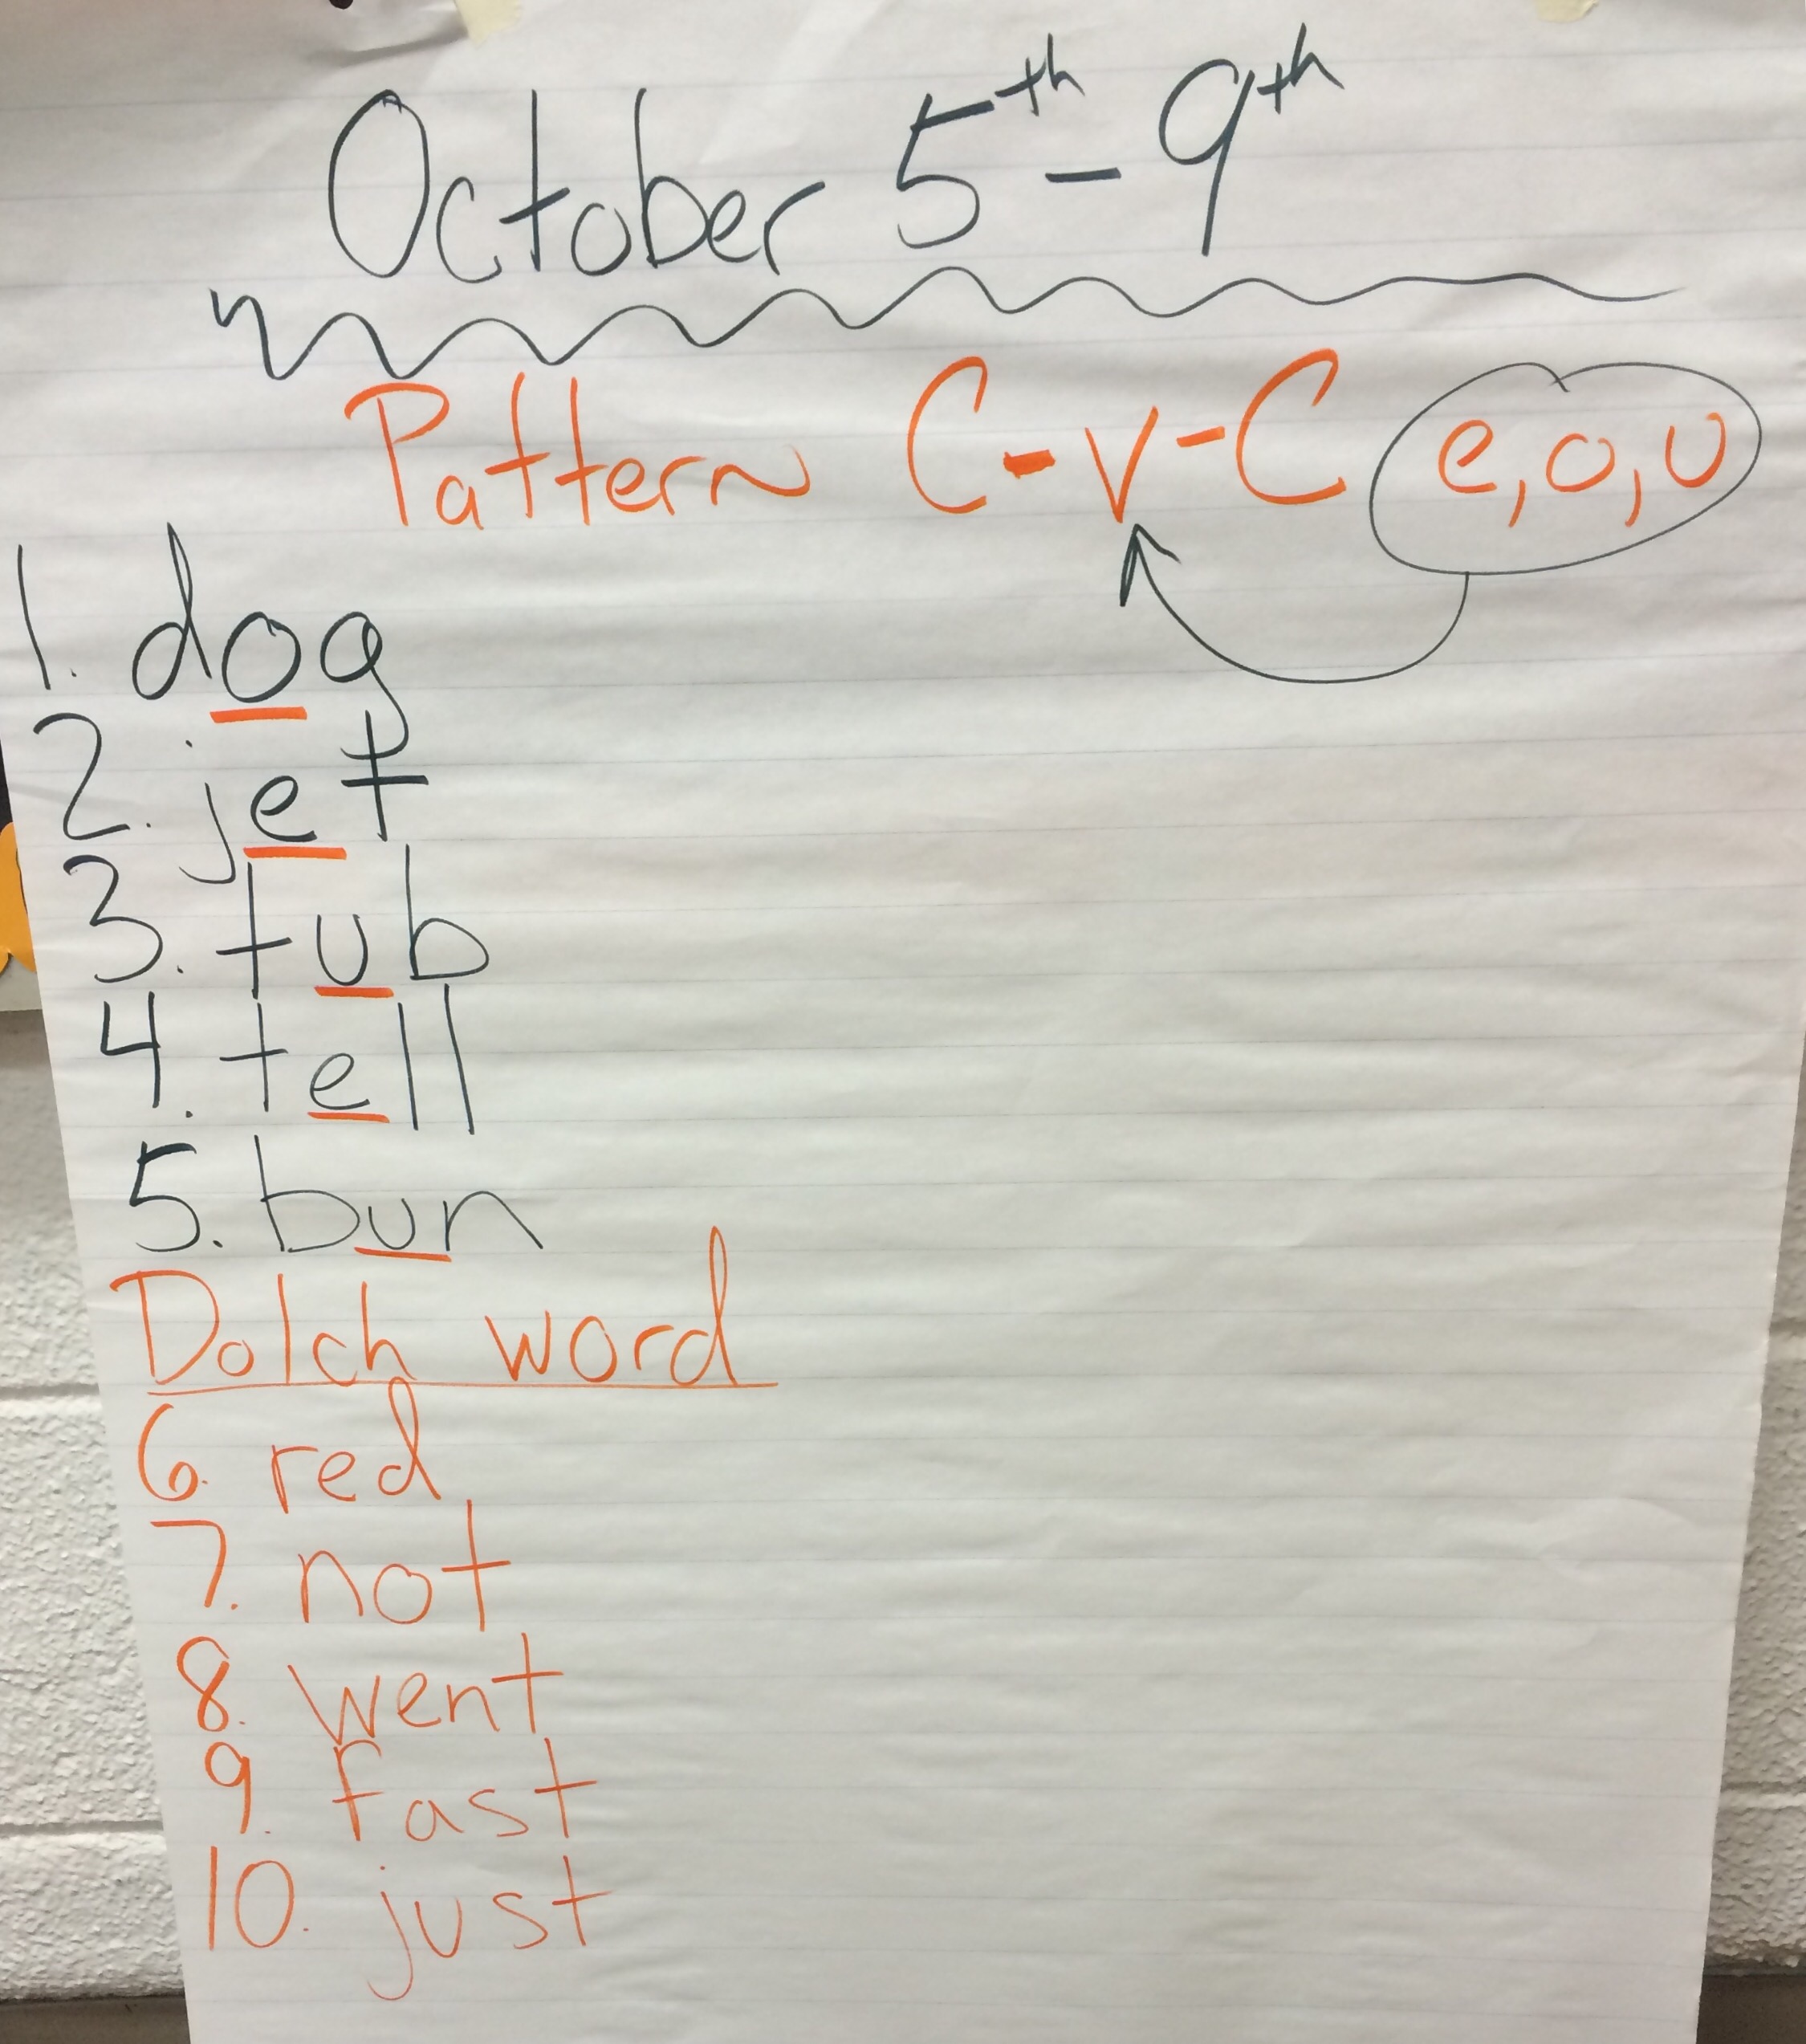 October 5th - 9th
Pattern C-v-C e,o,u
1. dog
2. jet
3. tub
4. tell
5. bun
Dolch word
6. red
7. not
8. went
9. fast
10. just